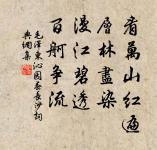 看萬山紅遍
層林盡染
漫江碧透
百舸争流
毛澤東沁園春長沙詞